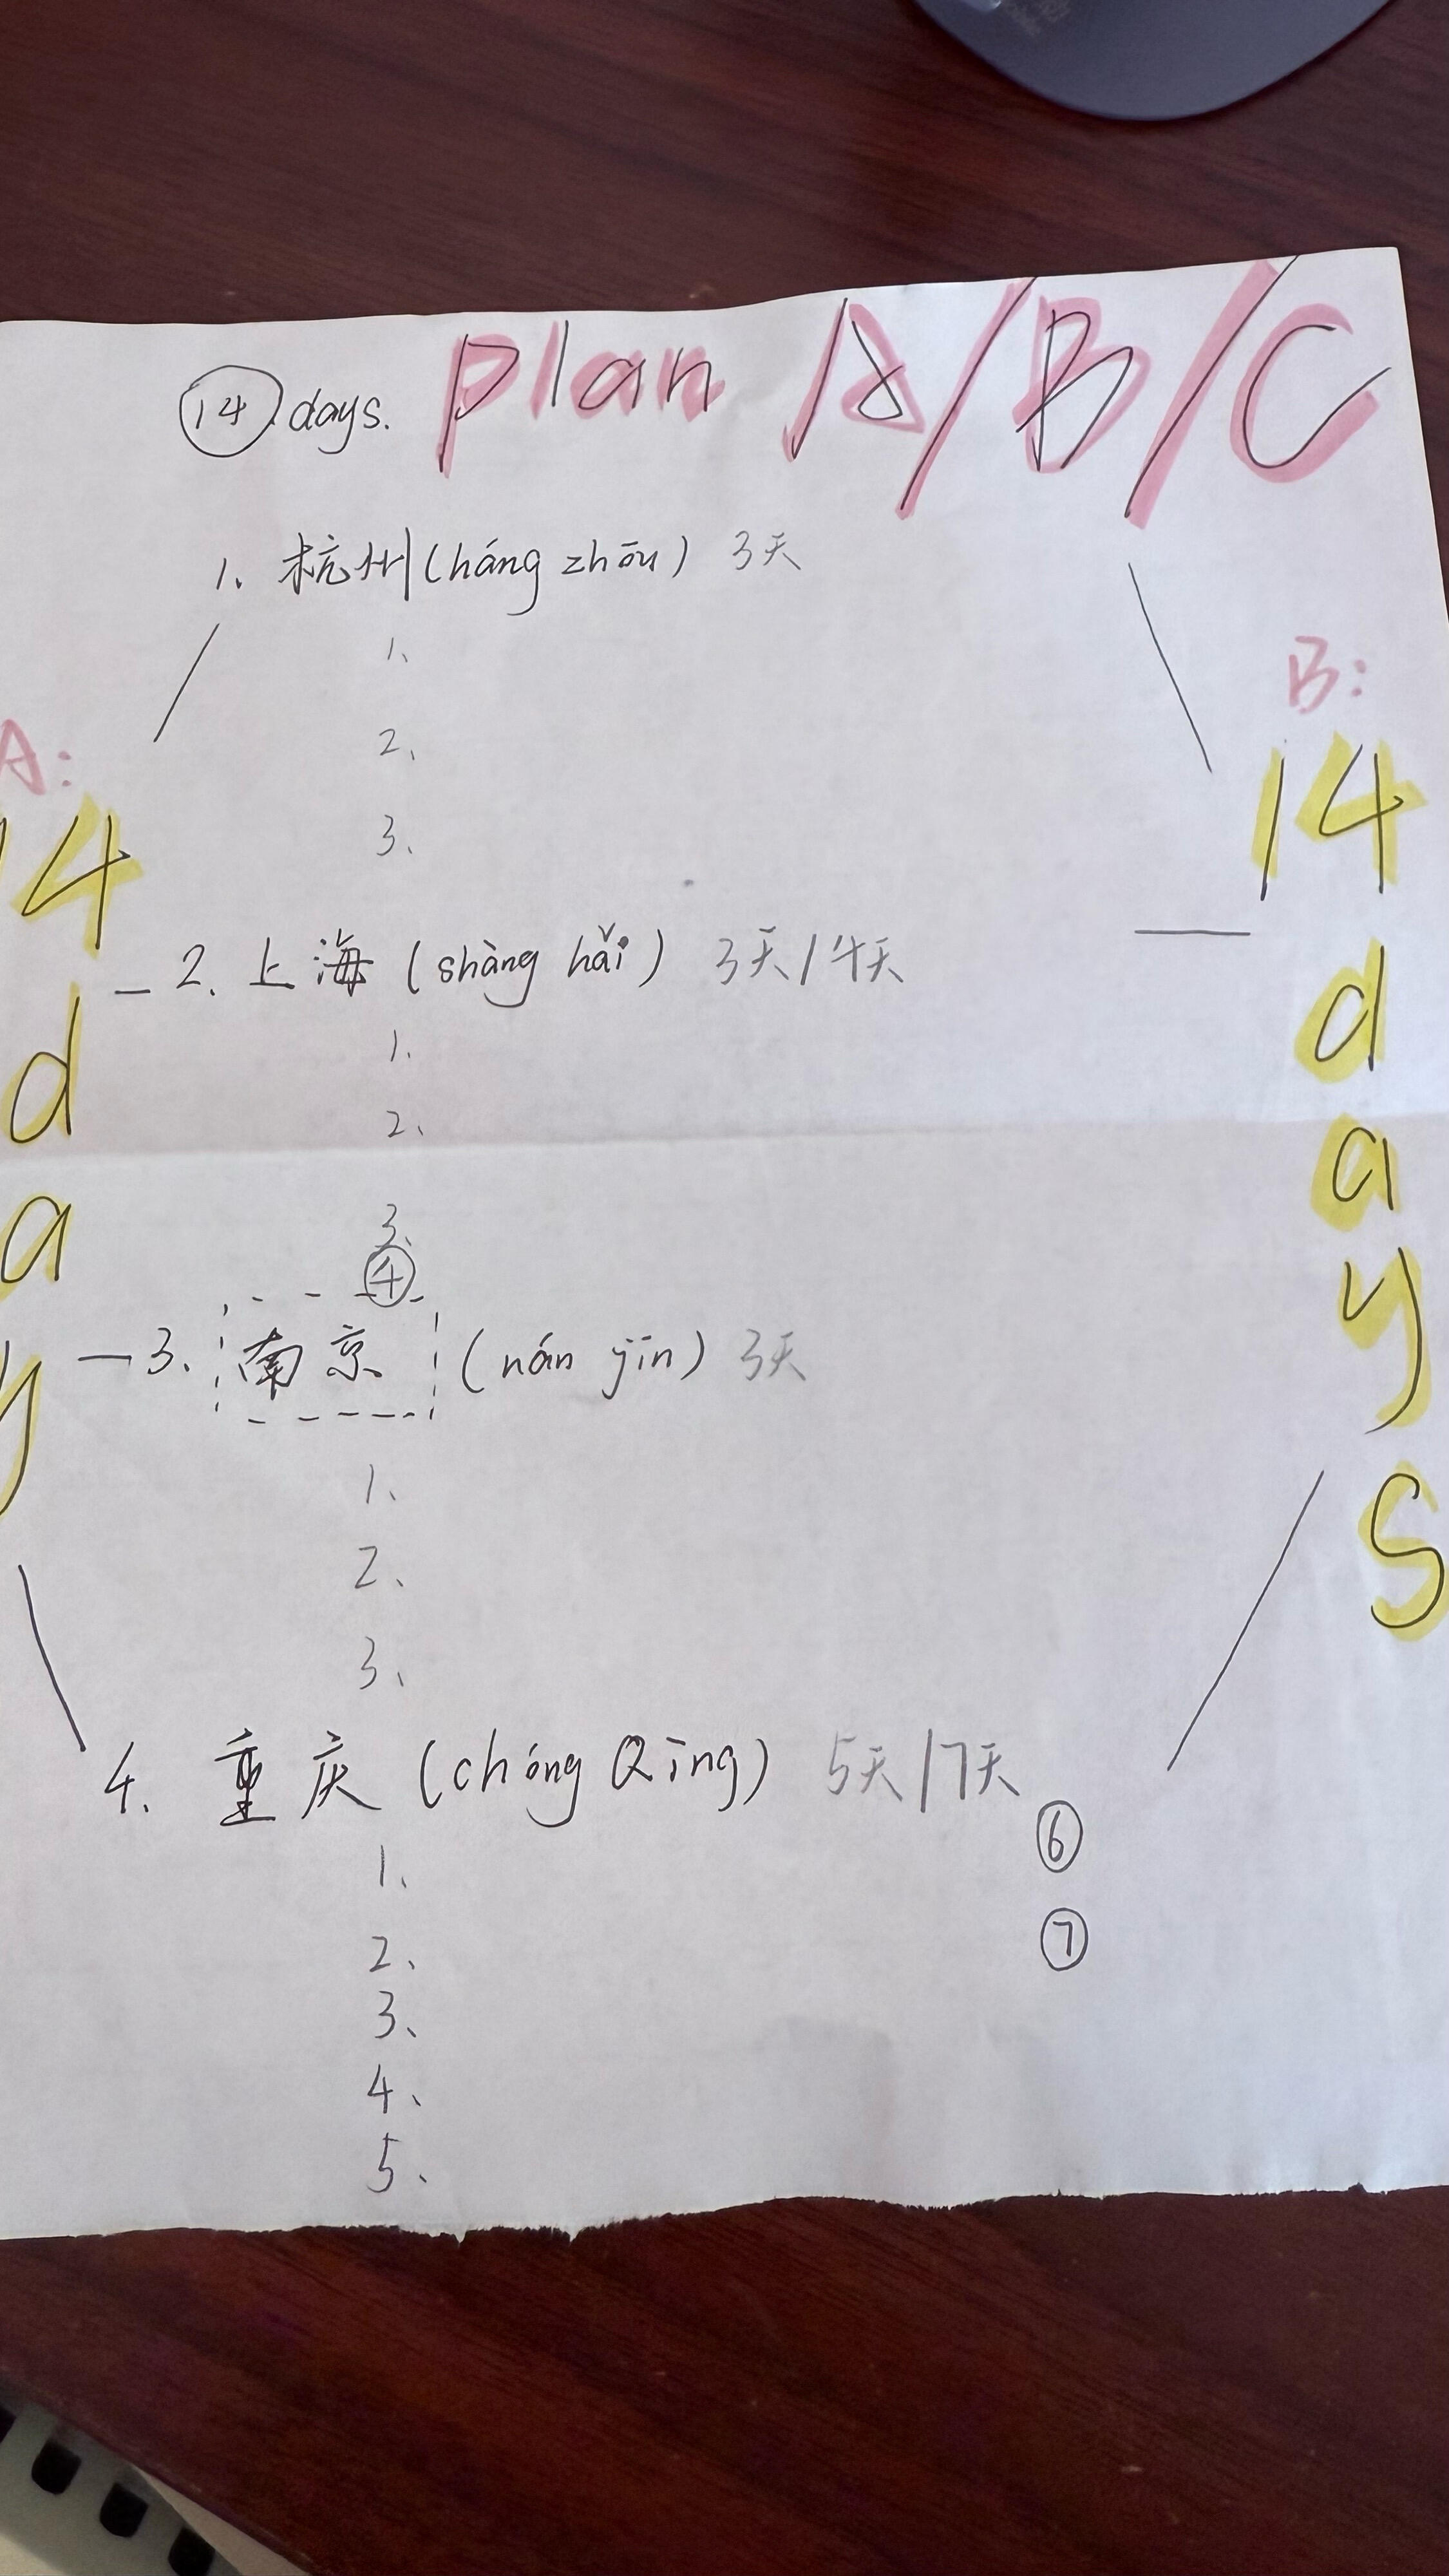 14 days. plan A/B/C
1. 杭州 (háng zhōu) 3天
1、
2、
3、
2. 上海 (shàng hǎi) 3天/4天
1.
2.
3.
④
3. 南京 (nán jīn) 3天
1、
2、
3、
4. 重庆 (chóng Qīng) 5天/7天
⑥
1、
⑦
2、
3、
4、
5、
A:
14
d
a
y
B:
14
d
a
y
s